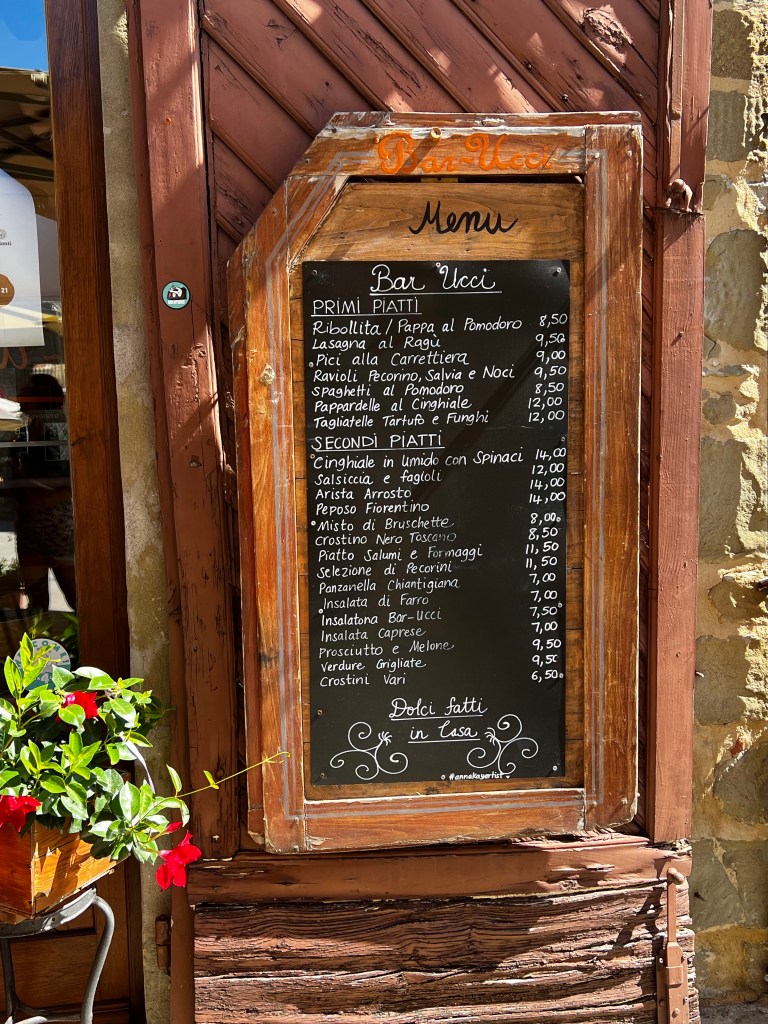 Bar-Ucci
Menu
Bar Ucci
PRIMI PIATTI
Ribollita / Pappa al Pomodoro 8,50
Lasagna al Ragù 9,50
Pici alla Carrettiera 9,00
Ravioli Pecorino, Salvia e Noci 9,50
Spaghetti al Pomodoro 8,50
Pappardelle al Cinghiale 12,00
Tagliatelle Tartufo e Funghi 12,00
SECONDI PIATTI
Cinghiale in Umido con Spinaci 14,00
Salsiccia e fagioli 12,00
Arista Arrosto 14,00
Peposo Fiorentino 14,00
Misto di Bruschette 8,00
Crostino Nero Toscano 8,50
Piatto Salumi e Formaggi 11,50
Selezione di Pecorini 11,50
Panzanella Chiantigiana 7,00
Insalata di Farro 7,00
Insalatona Bar-Ucci 7,50
Insalata Caprese 7,00
Prosciutto e Melone 9,50
Verdure Grigliate 9,50
Crostini Vari 6,50
Dolci fatti
in Casa
#annakayartist
21